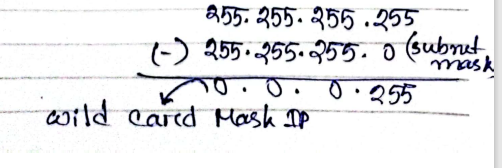 255.255.255.255
(-) 255.255.255.0 (subnet mask
0.0.0.255
wild Cared Mask IP